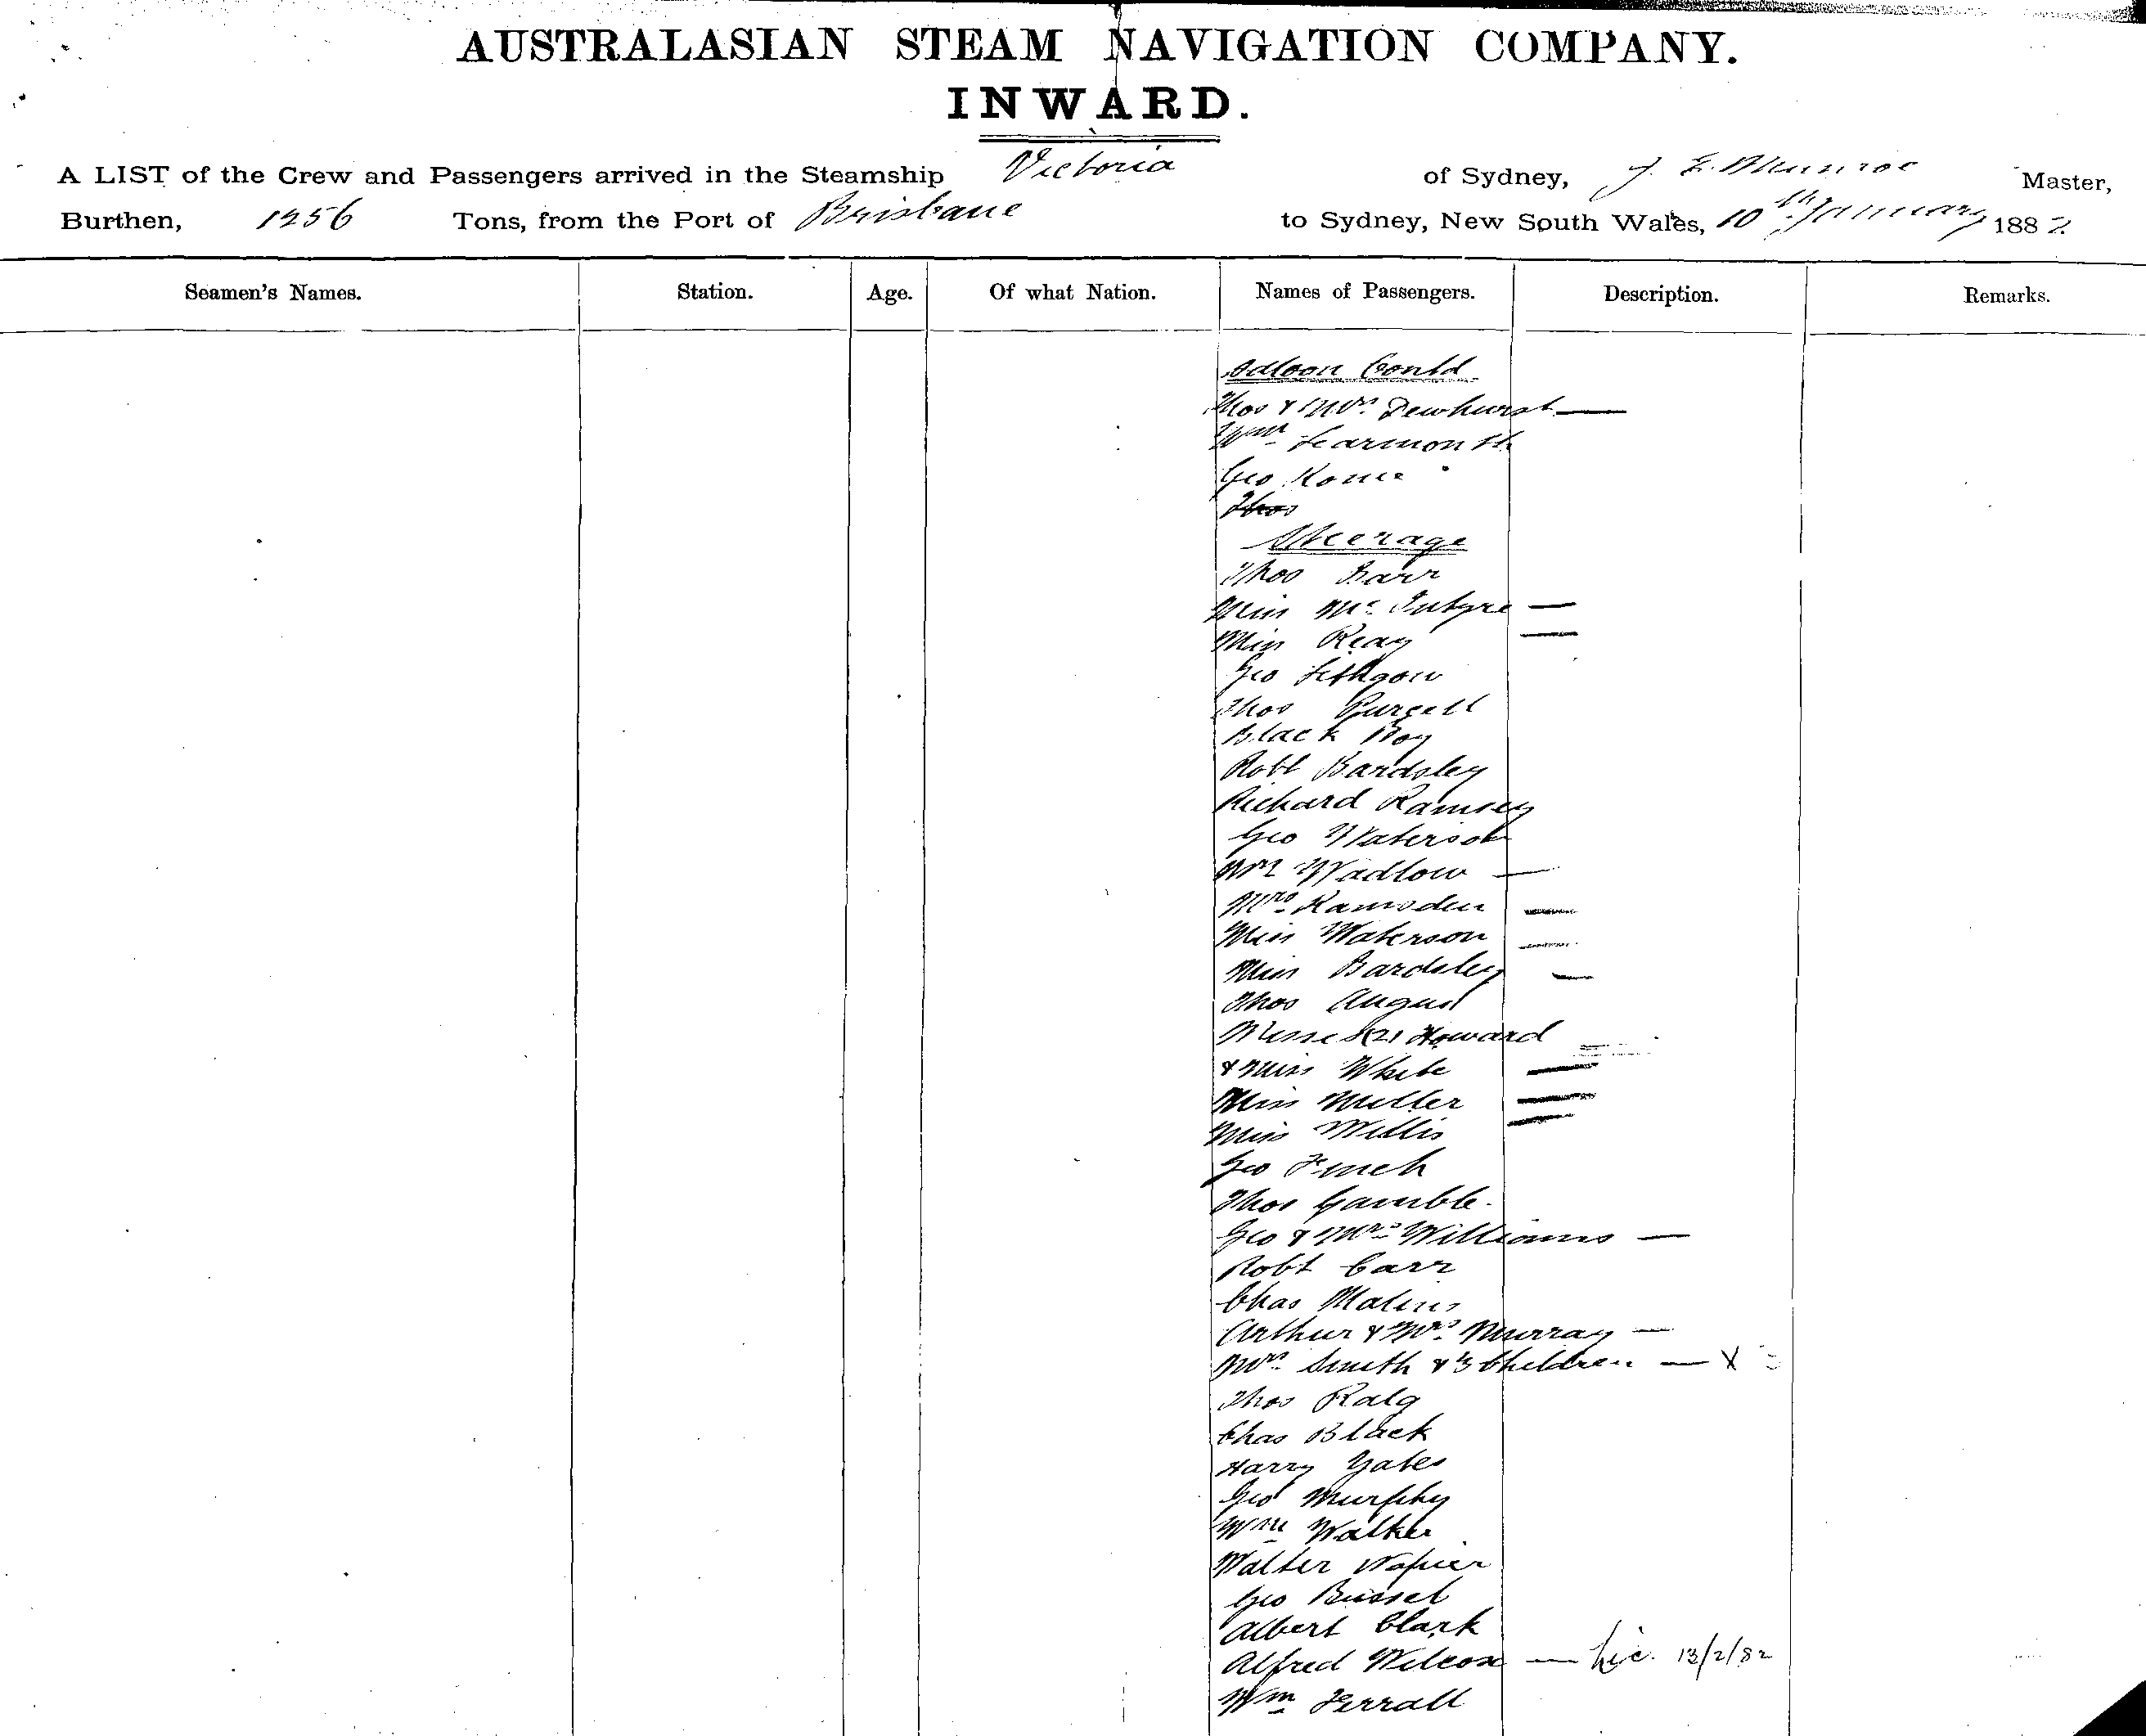 AUSTRALASIAN STEAM NAVIGATION COMPANY.
INWARD.
A LIST of the Crew and Passengers arrived in the Steamship Victoria of Sydney, J. E. Munroe Master,
Burthen, 1256 Tons, from the Port of Brisbane to Sydney, New South Wales, 10th January 1882
Seamen's Names. Station. Age. Of what Nation. Names of Passengers. Description. Remarks.
Saloon Contd
Thos & Mrs Dewhurst —
Wm Learmonth
Geo
Thos
Steerage
Thos Barr
Miss McIntyre —
Miss Reay —
Geo Lithgow
Thos Purcell
Black Boy
Robt Bardsley
Richard Ramsey
Geo Waterson
Wm Wadlow —
Mrs Ramsden —
Miss Waterson —
Miss Bardsley —
Thos Angus
Misses (2) Howard
& Miss White —
Miss Miller —
Miss Willis —
Geo Finch
Thos Gamble
Geo & Mrs Williams —
Robt Carr
Chas Malins
Arthur & Mrs Murray —
Mrs Smith & 3 Children — X
Thos
Chas Black
Harry Yates
Geo Murphy
Wm Walker
Walter Napier
Geo Bussel
Albert Clark
Alfred Wilcox — Lic. 13/2/82
Wm Ferrall